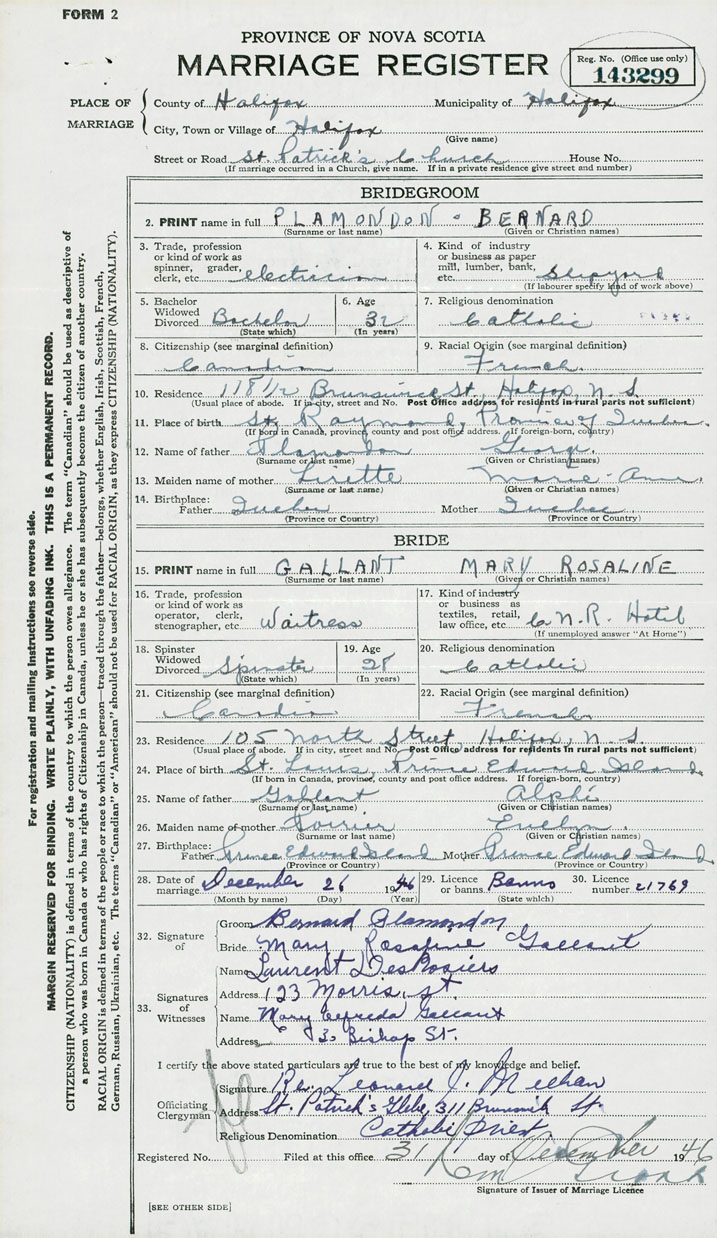 FORM 2
PROVINCE OF NOVA SCOTIA
MARRIAGE REGISTER
Reg. No. (Office use only)
143299
PLACE OF MARRIAGE
County of Halifax Municipality of Halifax
City, Town or Village of Halifax
(Give name)
Street or Road St. Patrick's Church House No.
(If marriage occurred in a Church, give name. If in a private residence give street and number)
BRIDEGROOM
2. PRINT name in full PLAMONDON - BERNARD
(Surname or last name) (Given or Christian names)
3. Trade, profession or kind of work as spinner, grader, clerk, etc. electrician
4. Kind of industry or business as paper mill, lumber, bank, etc. Shipyard
(If labourer specify kind of work above)
5. Bachelor Widowed Divorced Bachelor
(State which)
6. Age 32
(In years)
7. Religious denomination
Catholic
8. Citizenship (see marginal definition)
Canadian
9. Racial Origin (see marginal definition)
French
10. Residence 118 1/2 Brunswick St, Halifax, N. S.
(Usual place of abode. If in city, street and No. Post Office address for residents in rural parts not sufficient)
11. Place of birth St. Raymond, Province of Quebec
(If born in Canada, province, county and post office address. If foreign-born, country)
12. Name of father Plamondon George
(Surname or last name) (Given or Christian names)
13. Maiden name of mother Marie-Ann
(Surname or last name) (Given or Christian names)
14. Birthplace:
Father Quebec Mother Quebec
(Province or Country) (Province or Country)
BRIDE
15. PRINT name in full GALLANT MARY ROSALINE
(Surname or last name) (Given or Christian names)
16. Trade, profession or kind of work as operator, clerk, stenographer, etc. Waitress
17. Kind of industry or business as textiles, retail, law office, etc. C.N.R. Hotel
(If unemployed answer "At Home")
18. Spinster Widowed Divorced Spinster
(State which)
19. Age 28
(In years)
20. Religious denomination
Catholic
21. Citizenship (see marginal definition)
22. Racial Origin (see marginal definition)
French
23. Residence 105 North Street, Halifax, N. S.
(Usual place of abode. If in city, street and No. Post Office address for residents in rural parts not sufficient)
24. Place of birth St. Louis, Prince Edward Island
(If born in Canada, province, county and post office address. If foreign-born, country)
25. Name of father Gallant Alphé
(Surname or last name) (Given or Christian names)
26. Maiden name of mother Poirier Evelyn
(Surname or last name) (Given or Christian names)
27. Birthplace:
Father Prince Edward Island Mother Prince Edward Island
(Province or Country) (Province or Country)
28. Date of marriage December 26 1946
(Month by name) (Day) (Year)
29. Licence or banns Banns
(State which)
30. Licence number 21769
32. Signature of
Groom Bernard Plamondon
Bride Mary Rosaline Gallant
33. Signatures of Witnesses
Name Laurent DesRosiers
Address 123 Morris, St.
Name Mary Alfreda Gallant
Address Bishop St.
I certify the above stated particulars are true to the best of my knowledge and belief.
Officiating Clergyman
Signature Rev. Leonard J. Meehan
Address St. Patrick's Glebe, 311 Brunswick St.
Religious Denomination Catholic Priest
Registered No. Filed at this office 31 day of December 1946
Signature of Issuer of Marriage Licence
[SEE OTHER SIDE]
For registration and mailing instructions see reverse side.
MARGIN RESERVED FOR BINDING. WRITE PLAINLY, WITH UNFADING INK. THIS IS A PERMANENT RECORD.
CITIZENSHIP (NATIONALITY) is defined in terms of the country to which the person owes allegiance. The term "Canadian" should be used as descriptive of
a person who was born in Canada or who has rights of Citizenship in Canada, unless he or she has subsequently become the citizen of another country.
RACIAL ORIGIN is defined in terms of the people or race to which the person—traced through the father—belongs, whether English, Irish, Scottish, French,
German, Russian, Ukrainian, etc. The terms "Canadian" or "American" should not be used for RACIAL ORIGIN, as they express CITIZENSHIP (NATIONALITY).